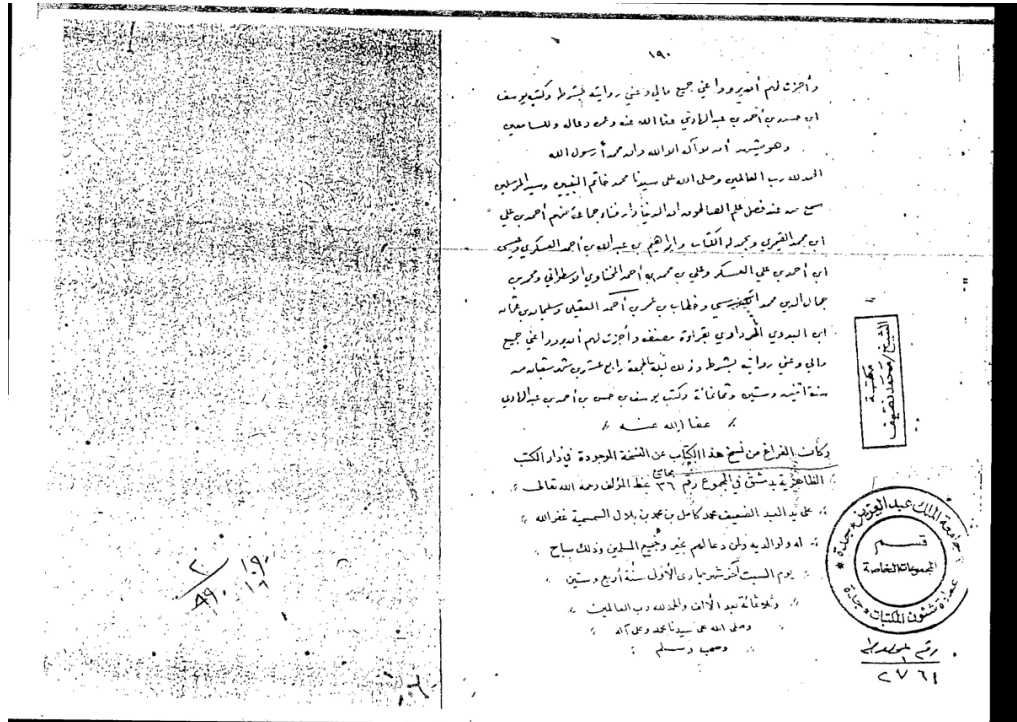 ١٩٠
وأجزت لهم أن يرووا عني جميع مالي وعني روايته بشرطه وكتب يوسف
ابن حسن بن أحمد بن عبد الهادي عفا الله عنه وعن دعا له وللسامعين
وهو يشهد أن لا اله الا الله وأن محمداً رسول الله
الحمد لله رب العالمين وصلى الله على سيدنا محمد خاتم النبيين وسيد المرسلين
سمع من عند فصل علم الصالحون أن الدنيا دار فناء جماعة منهم أحمد بن علي
ابن محمد ويحمد له الكتاب وابراهيم بن عبد الله بن أحمد العسكري وعيسى
ابن أحمد بن علي العسكر وعلي بن محمد بن أحمد ومحمد بن
جمال الدين محمد وخطاب بن عمر بن أحمد وسلمان بن عثمان
ابن البدوي المرداوي بقراءة مصنفه وأجزت لهم أن يرووا عني جميع
مالي وعني روايته بشرطه وذلك ليلة الجمعة رابع عشرين شهر شعبان من
سنة اثنين وستين وثمانمائة وكتب يوسف بن حسن بن أحمد بن عبد الهادي
عفا الله عنه
وكان الفراغ من نسخ هذا الكتاب عن النسخة الموجودة في دار الكتب
الظاهرية بدمشق في المجموع رقم ٣٦ بخط المؤلف رحمه الله تعالى
على يد العبد الضعيف محمد كامل بن محمد بن بلال السمسمية غفر الله
له ولوالديه ولمن دعا لهم بخير ولجميع المسلمين وذلك صباح
يوم السبت آخر شهر جمادى الأول سنة أربع وستين
وثلاثمائة بعد الألف والحمد لله رب العالمين
وصلى الله على سيدنا محمد وعلى آله
وصحبه وسلم
مكتبة
الشيخ/محمد نصيف
جامعة الملك عبد العزيز - جدة
قسم
المجموعات الخاصة
عمادة شئون المكتبات - جدة
٢٧٦١
١٩٠
١٦